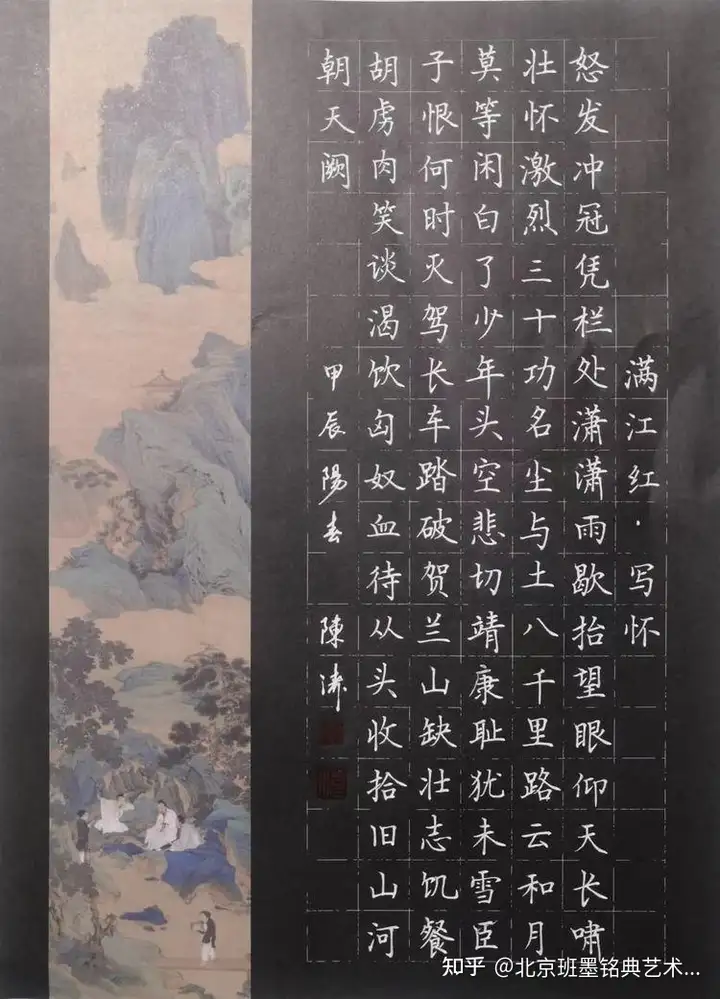 满江红·写怀
怒发冲冠凭栏处潇潇雨歇抬望眼仰天长啸
壮怀激烈三十功名尘与土八千里路云和月
莫等闲白了少年头空悲切靖康耻犹未雪臣
子恨何时灭驾长车踏破贺兰山缺壮志饥餐
胡虏肉笑谈渴饮匈奴血待从头收拾旧山河
朝天阙 甲辰陽春 陳涛
知乎 @北京班墨铭典艺术...